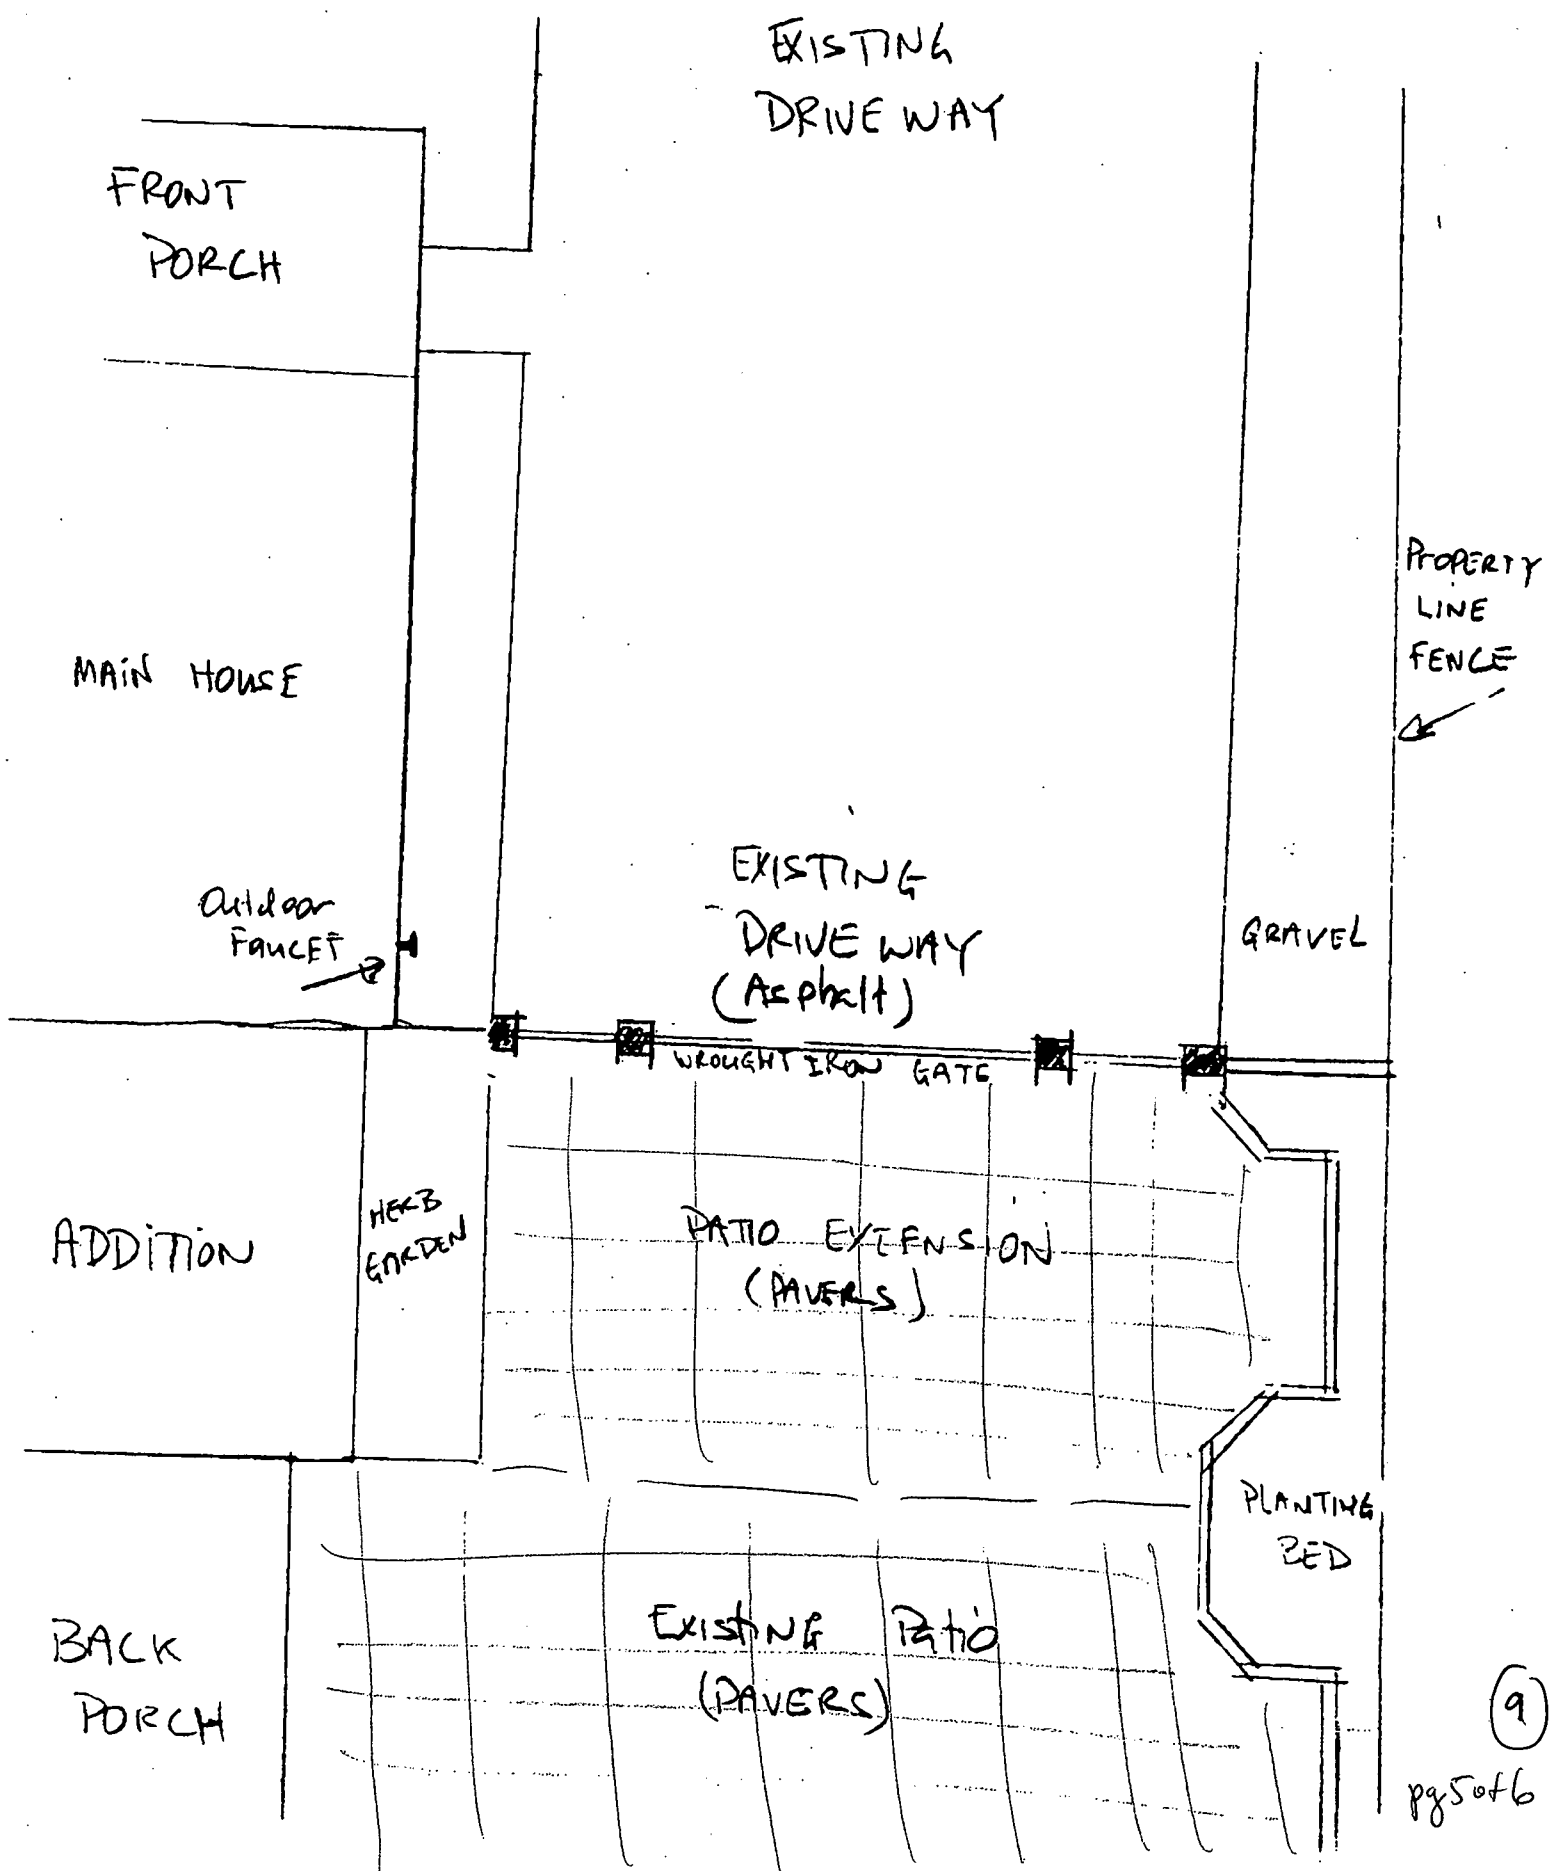 EXISTING
DRIVE WAY
FRONT
PORCH
PROPERTY
LINE
FENCE
MAIN HOUSE
EXISTING
DRIVE WAY
(Asphalt)
Outdoor
FAUCET
GRAVEL
WROUGHT IRON GATE
HERB
GARDEN
ADDITION
PATIO EXTENSION
(PAVERS)
PLANTING
BED
EXISTING Patio
(PAVERS)
BACK
PORCH
9
pg 5 of 6